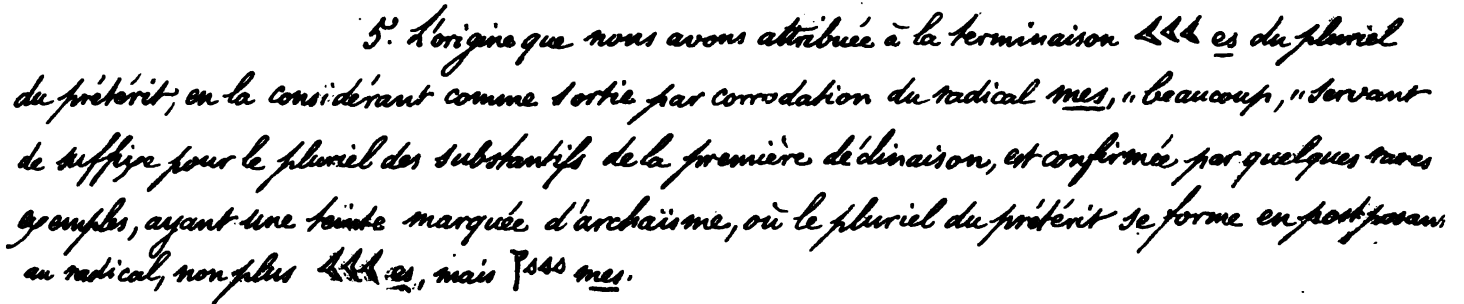 5. L'origine que nous avons attribuée à la terminaison 𒌍 es du pluriel
du prétérit, en la considérant comme sortie par corrodation du radical mes, „beaucoup," servant
de suffixe pour le pluriel des substantifs de la première déclinaison, est confirmée par quelques rares
exemples, ayant une teinte marquée d'archaïsme, où le pluriel du prétérit se forme en postposant
au radical, non plus 𒌍 es, mais 𒈨𒌍 mes.